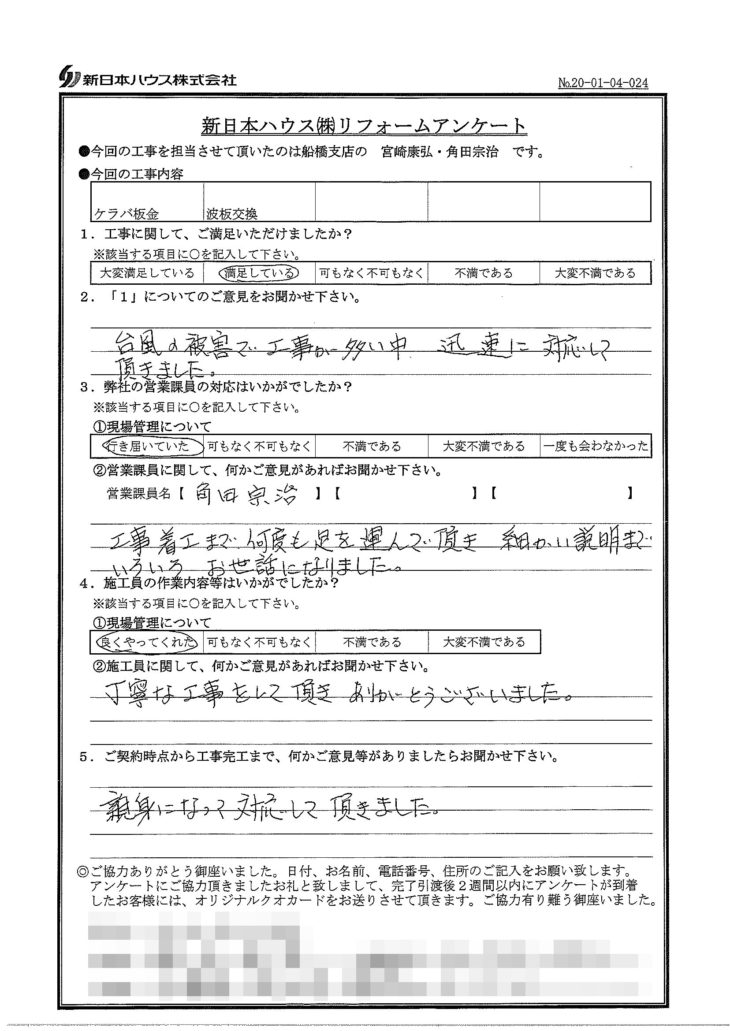 新日本ハウス株式会社
No.20-01-04-024
新日本ハウス㈱リフォームアンケート
●今回の工事を担当させて頂いたのは船橋支店の 宮崎康弘・角田宗治 です。
●今回の工事内容
ケラバ板金 波板交換
1．工事に関して、ご満足いただけましたか？
※該当する項目に○を記入して下さい。
大変満足している 満足している 可もなく不可もなく 不満である 大変不満である
2．「1」についてのご意見をお聞かせ下さい。
台風の被害で工事が多い中 迅速に対応して
頂きました。
3．弊社の営業課員の対応はいかがでしたか？
※該当する項目に○を記入して下さい。
①現場管理について
行き届いていた 可もなく不可もなく 不満である 大変不満である 一度も会わなかった
②営業課員に関して、何かご意見があればお聞かせ下さい。
営業課員名【 角田宗治 】【 】【 】
工事着工まで何度も足を運んで頂き 細かい説明まで
いろいろ お世話になりました。
4．施工員の作業内容等はいかがでしたか？
※該当する項目に○を記入して下さい。
①現場管理について
良くやってくれた 可もなく不可もなく 不満である 大変不満である
②施工員に関して、何かご意見があればお聞かせ下さい。
丁寧な工事をして頂き ありがとうございました。
5．ご契約時点から工事完工まで、何かご意見等がありましたらお聞かせ下さい。
親身になって対応して頂きました。
◎ご協力ありがとう御座いました。日付、お名前、電話番号、住所のご記入をお願い致します。
アンケートにご協力頂きましたお礼と致しまして、完了引渡後２週間以内にアンケートが到着
したお客様には、オリジナルクオカードをお送りさせて頂きます。ご協力有り難う御座いました。